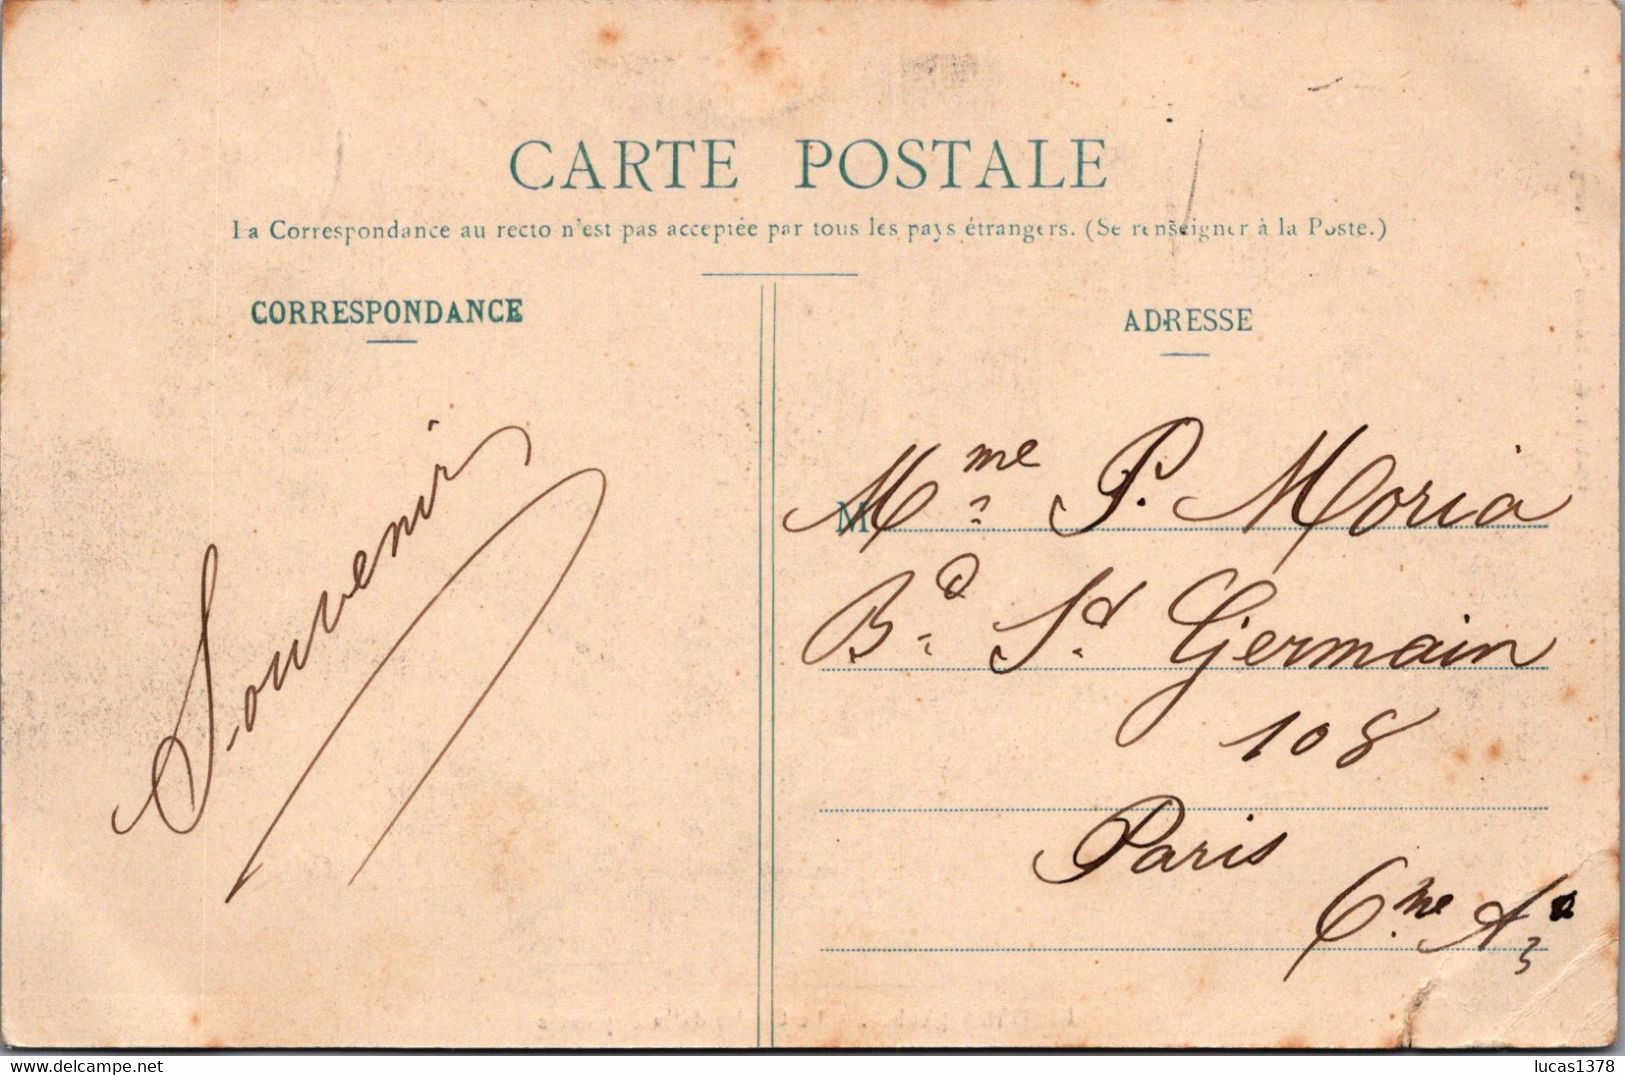 CARTE POSTALE
La Correspondance au recto n'est pas acceptée par tous les pays étrangers. (Se renseigner à la Poste.)
CORRESPONDANCE
ADRESSE
Souvenir
M
Mme P. Moria
Bd St Germain
108
Paris
6me Ar
delcampe.net
lucas1378